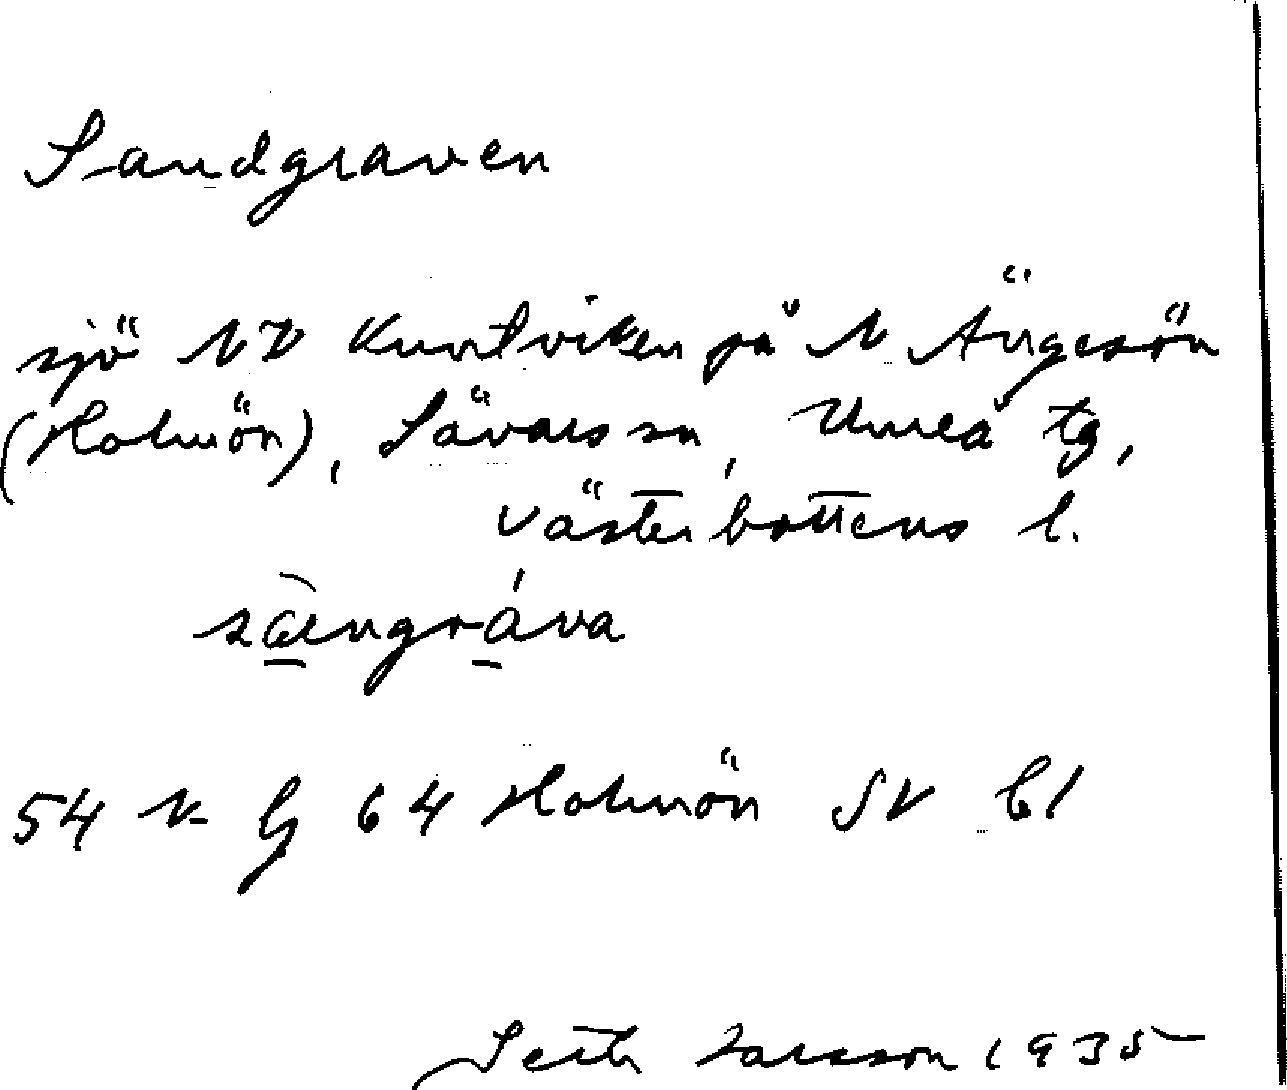 Sandgraven
sjö NV Knutviken på N Ängesön
(Holmön), Sävars sn, Umeå tg,
Västerbottens l.
54 N G 64 Holmön SV bl
Seth Larsson 1935